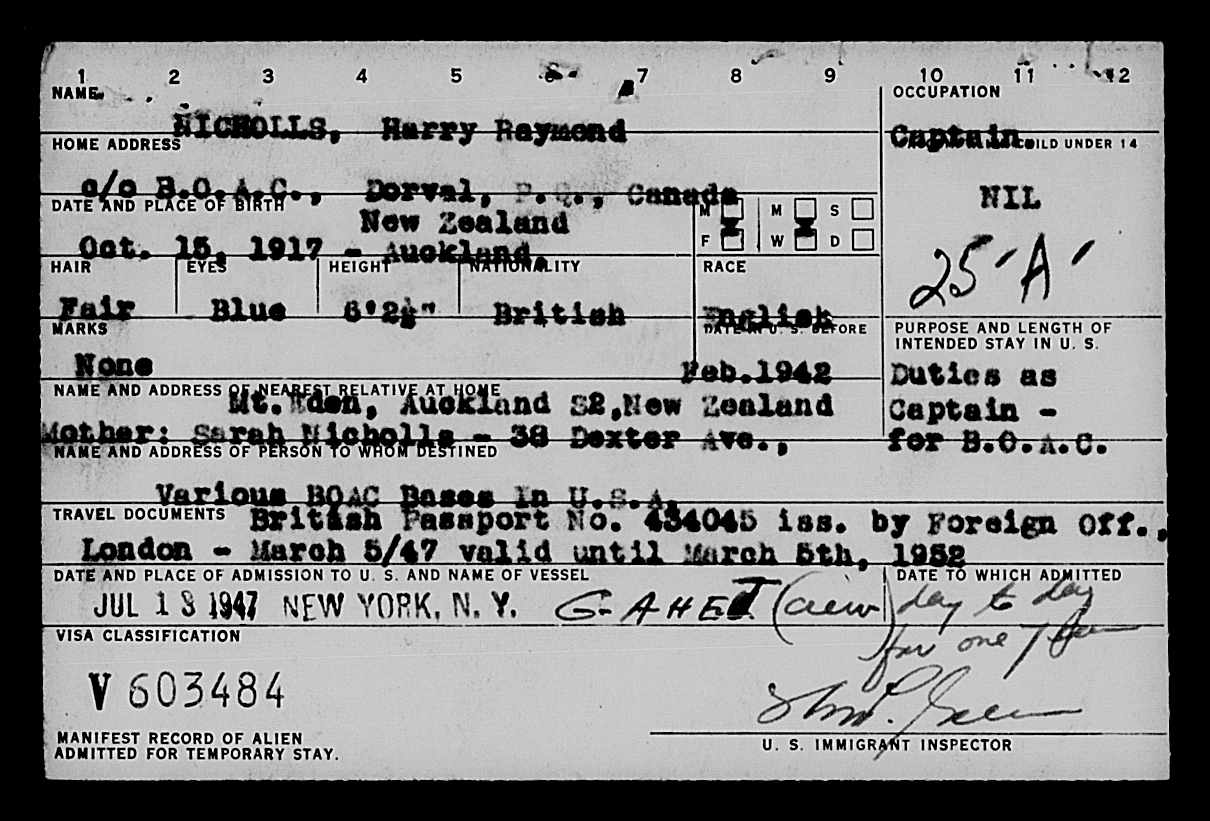 1 2 3 4 5 6 7 8 9 10 11 12
NAME OCCUPATION
NICHOLLS, Harry Raymond Captain.
HOME ADDRESS CHILD UNDER 14
c/o B.O.A.C., Dorval, P.Q., Canada NIL
DATE AND PLACE OF BIRTH M M S
New Zealand
Oct. 15, 1917 - Auckland. F W D
25 'A'
HAIR EYES HEIGHT NATIONALITY RACE
Fair Blue 6'2½" British English
MARKS DATE IN U. S. BEFORE PURPOSE AND LENGTH OF
INTENDED STAY IN U. S.
None Feb.1942 Duties as
NAME AND ADDRESS OF NEAREST RELATIVE AT HOME
Mt. Eden, Auckland S2, New Zealand Captain -
Mother: Sarah Nicholls - 38 Dexter Ave., for B.O.A.C.
NAME AND ADDRESS OF PERSON TO WHOM DESTINED
Various BOAC Bases in U.S.A.
TRAVEL DOCUMENTS British Passport No. 434045 iss. by Foreign Off.,
London - March 5/47 valid until March 5th, 1952
DATE AND PLACE OF ADMISSION TO U. S. AND NAME OF VESSEL DATE TO WHICH ADMITTED
JUL 13 1947 NEW YORK, N. Y. G-AHEJ (crew) day to day
VISA CLASSIFICATION for one year
V 603484
MANIFEST RECORD OF ALIEN
ADMITTED FOR TEMPORARY STAY.
U. S. IMMIGRANT INSPECTOR